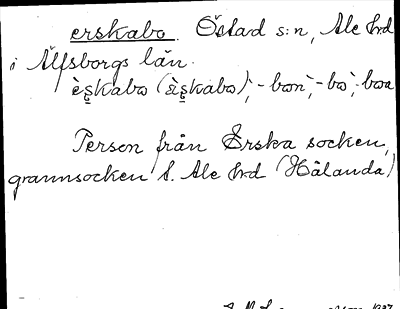 erskabo. Östad s:n, Ale hrd
i Älfsborgs län.
èʂkabo (ɛ̀ʂkabo), -bon, -bo, -boa
Person från Erska socken,
grannsocken t. Ale hrd (Hålanda)